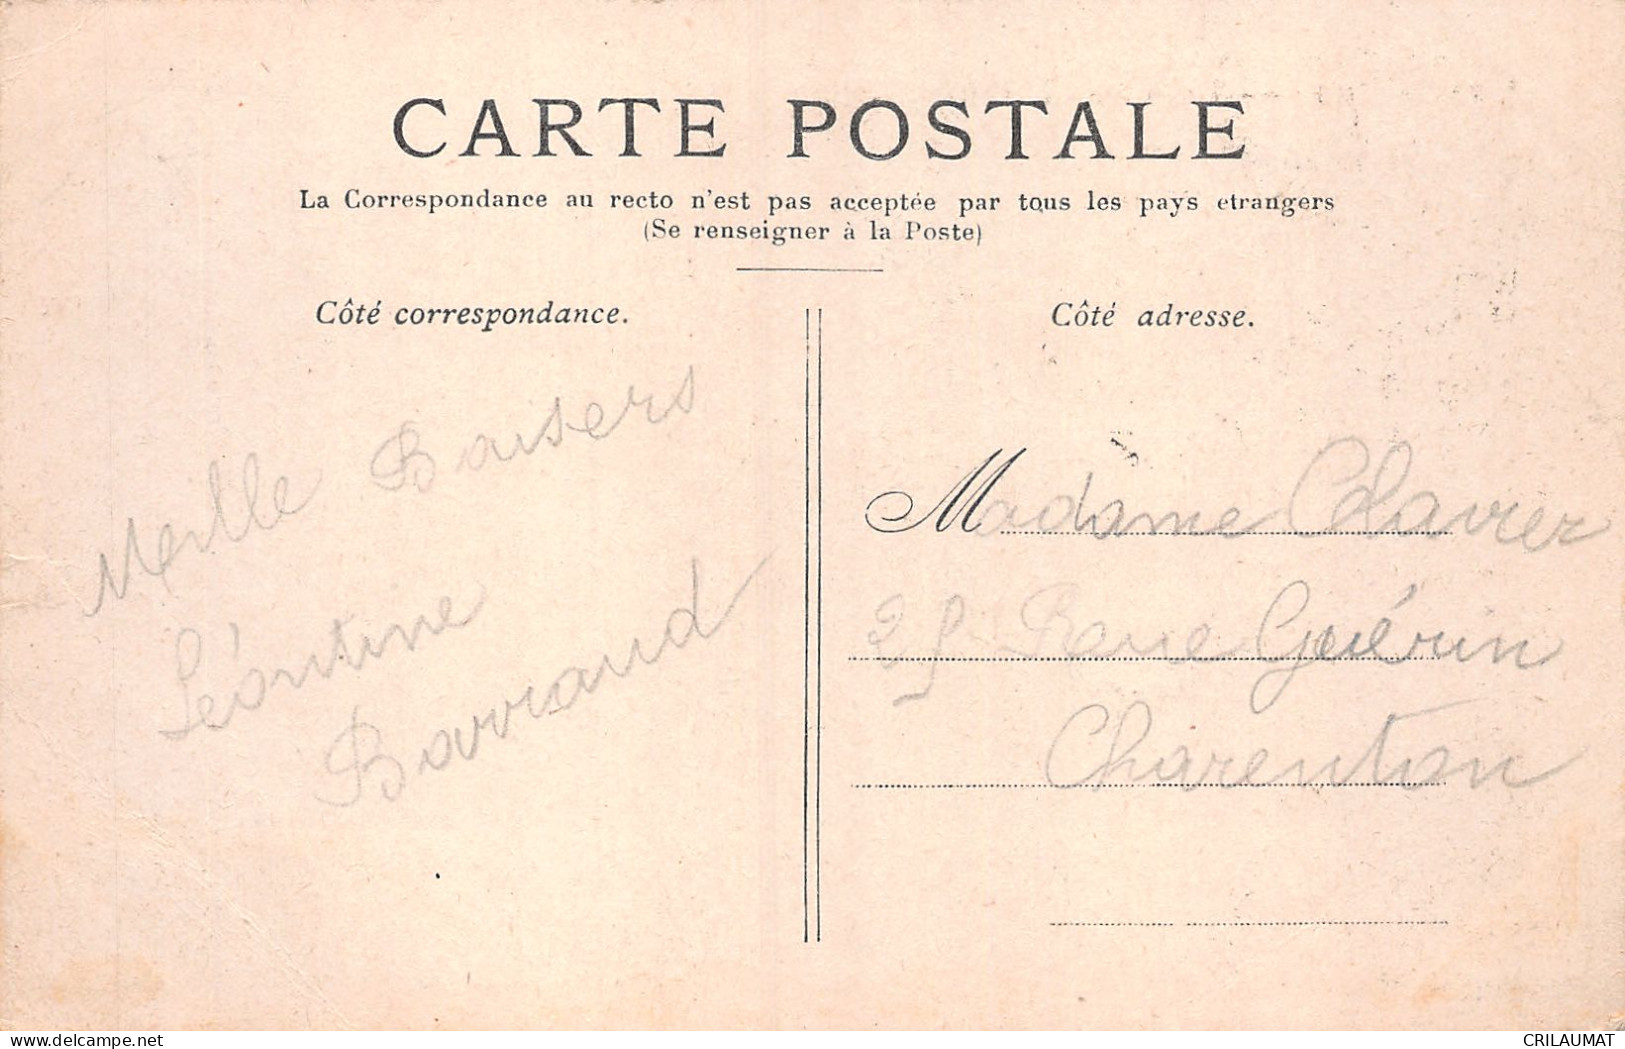 CARTE POSTALE
La Correspondance au recto n'est pas acceptée par tous les pays etrangers
(Se renseigner à la Poste)
Côté correspondance.
Côté adresse.
Meille Baisers
Léontine
Barraud
Madame Clavier
25 Rue Guérin
Charenton
delcampe.net
CRILAUMAT